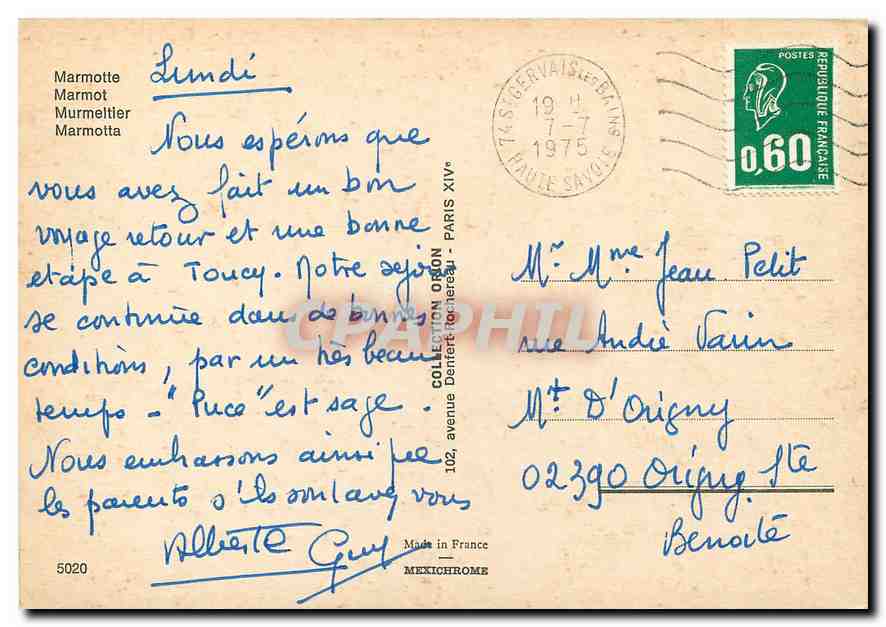 Marmotte
Marmot
Murmeltier
Marmotta
Lundi
Nous espérons que
vous avez fait un bon
voyage retour et une bonne
etape à Toucy. Notre sejour
se continue dans de bonnes
conditions, par un très beau
temps - "Puce" est sage.
Nous embrassons ainsi que
les parents s'ils sont avec vous
Alberte Guy
5020
COLLECTION ORION
102, avenue Denfert-Rochereau - PARIS XIVe
Made in France
MEXICHROME
74 ST GERVAIS LES BAINS
19 H
7-7
1975
HAUTE SAVOIE
POSTES
REPUBLIQUE FRANÇAISE
0,60
Mr. Mme Jean Petit
rue André Varin
Mt. D'Origny
02390 Origny Ste
Benoite
CPAPHIL